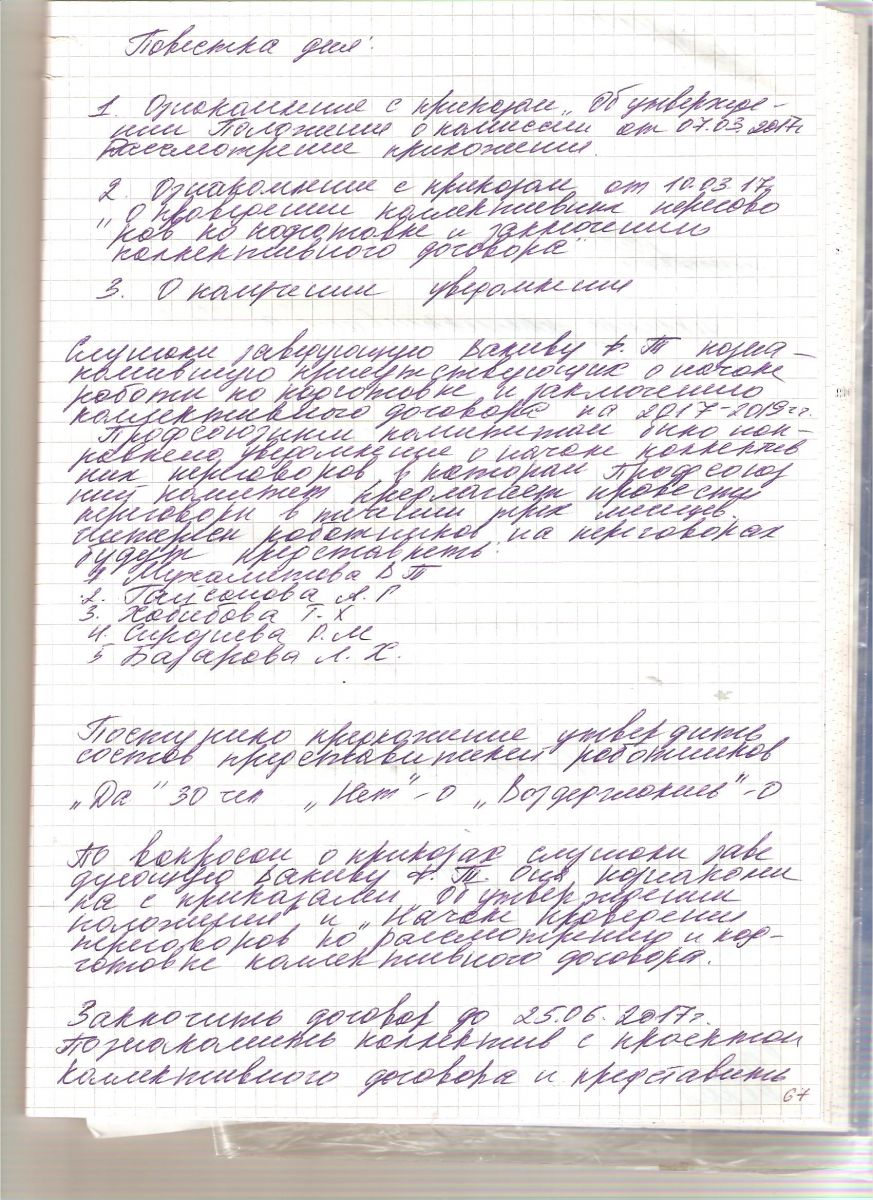 Повестка дня:
1. Ознакомление с приказом „Об утвержде-
нии Положения о комиссии от 07.03.2017г
Рассмотрение приложения.
2. Ознакомление с приказом от 10.03.17
„О проведении коллективных перегово
ров по подготовке и заключению
коллективного договора"
3. О получении уведомления
Слушали заведующую Вакиеву Ф. Т позна-
комившую присутствующих о начале
работы по подготовке и заключению
коллективного договора на 2017-2019 гг.
Профсоюзным комитетом было нап-
равлено уведомление о начале коллектив
ных переговоров в котором Профсоюз
ный комитет предлагает провести
переговоры в течении трех месяцев.
Интересы работников на переговорах
будут представлять:
1 Мухаметова В Т
2. Гапсонова А. Г
3. Хабибова Т. Х
4. Сиразиева Р. М
5 Базарова Л. Х.
Поступило предложение утвердить
состав представителей работников
„Да" 30 чел „Нет"-0 „Воздержались"-0
По вопросам о приказах слушали заве
дующую Вакиеву Ф. Т. она познакоми
ла с приказами Об утверждении
положения и „Начале проведения
переговоров по рассмотрению и под-
готовке коллективного договора.
Заключить договор до 25.06.2017г.
Познакомить коллектив с проектом
Коллективного договора и представить
67